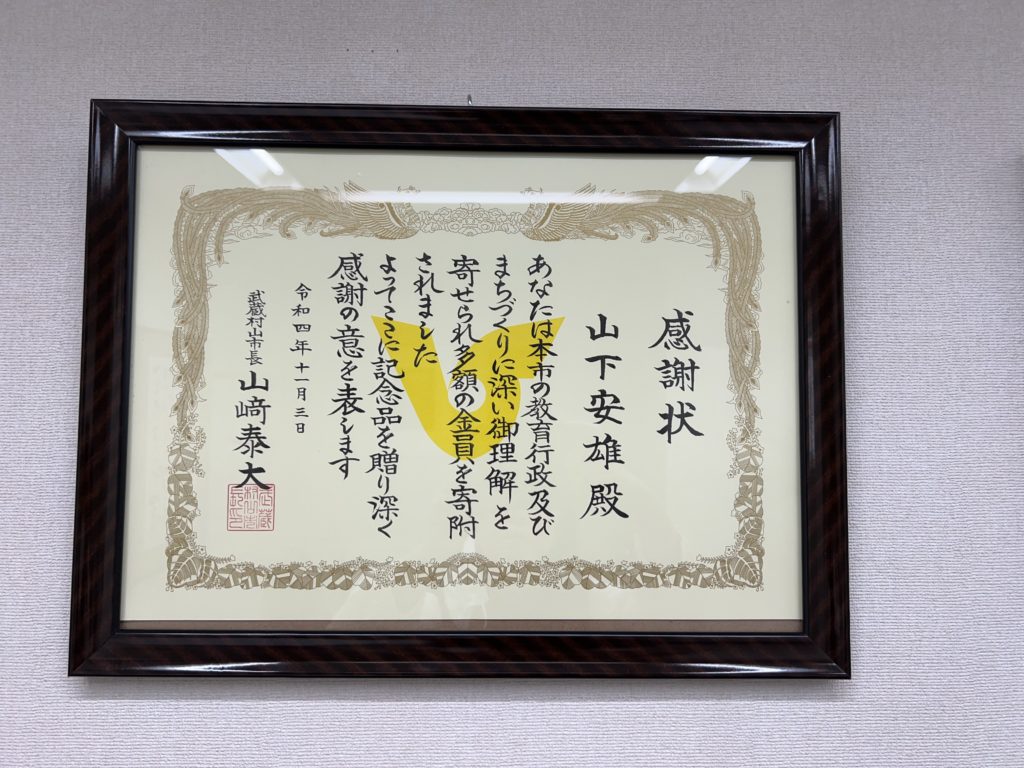 感謝状
山下安雄殿
あなたは本市の教育行政及び
まちづくりに深い御理解を
寄せられ多額の金員を寄附
されました
よってここに記念品を贈り深く
感謝の意を表します
令和四年十一月三日
武蔵村山市長 山﨑泰大
武蔵村山市長之印